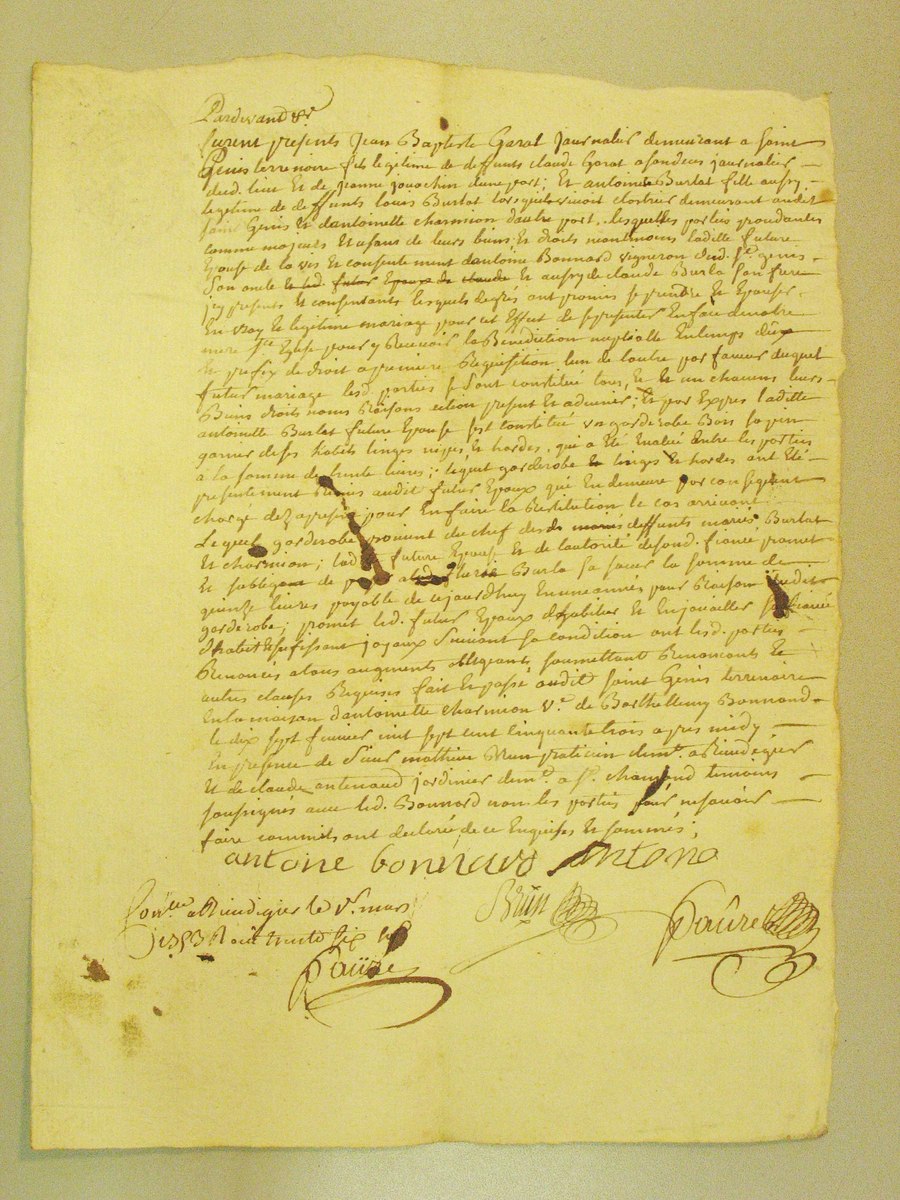 Pardevant &c
furent presents Jean Baptiste Garat Journalier demeurant a Saint
Genis terrenoire fils legitime de deffunts claude Garat journalier
dud. lieu Et de jeanne jouachin dune part; Et antoinette Burlat fille aussy
legitime de deffunts louis Burlat lorsquil vivoit clostrier demeurant audit
saint Genis Et dantoinette charmion dautre part, lesquelles parties procedantes
comme majeurs Et usans de leurs biens Et droits neantmoins ladite future
Epouse de la vis Et consentement dantoine Bonnard vigneron dud. st. genis
Son oncle Et led. futur Epoux de claude Et aussy de claude Burla Son frere
icy presents Et consentants lesquels degrés ont promis se prendre Et Epouser
En vray Et legitime mariage pour cet Effect de se presenter En face de notre
mere ste. Eglise pour y Recevoir la Benediction nuptialle En temps düe
Et prefix de droit a premiere Requisition lun de lautre par faveur duquel
futur mariage lesd. parties se Sont constitué tous, Et un chacuns leurs
Biens droits noms Raisons action present Et advenir; Et par Expres ladite
antoinette Burlat future Epouse sest constitüé un garderobe Bois sapin
garnie de ses habits linges nipes, Et hardes, qui a été Evalué Entre les parties
a la somme de trente livres; lequel garderobe linges Et hardes ont Eté
presentement Remis audit futur Epoux qui En demeure par consequent
chargé pour En faire la Restitution le cas arrivant
Lequel garderobe provient du chef desd. mariés deffunts mariés Burlat
Et charmion; lad. future Epouse Et de lautorité de sond. fiancé promet
Et soblige de Burla sa sœur la somme de
quinze livres payable de ce jourdhuy En une année pour Raison dudit
garderobe; promet led. futur Epoux dhabiller Et Enjoualler sa fiancée
dhabits suffisant joyaux Suivant sa condition ont lesd. parties
Renoncés a tous augments obligeants soumettant Renonceants Et
autres clauses Requises fait Et passé audit saint Genis terrenoire
En la maison dantoinette charmion ve. de Barthellemy Bonnard
le dix sept fevrier mil sept cent cinquante trois apres midy
En presence de Sieur mathieu praticien demt. a Rivedegier
Et de claude antenaud jardinier demt. a st. chamond temoins
soussignés avec led. Bonnard non les parties pour ne scavoir
faire comme ils ont declaré de ce Enquises Et sommés;
antoine bonnard
Brun
Paûre
Conlle a Rivedegier le mars
1753 R trente six
Paûre